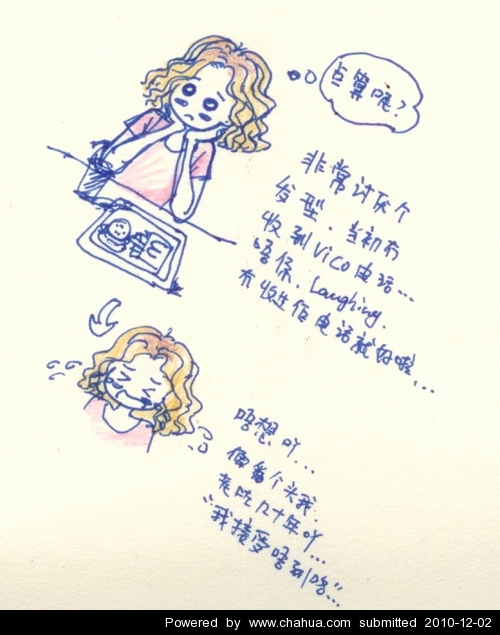 点算呢?
非常讨厌个
发型.当初冇
收到Vico电话...
唔係.Laughing.
冇收佐佢电话就好啦...
唔想吖...
像番个头我.
老咗几十年吖...
"我接受唔到啊"...
Powered by www.chahua.com submitted 2010-12-02